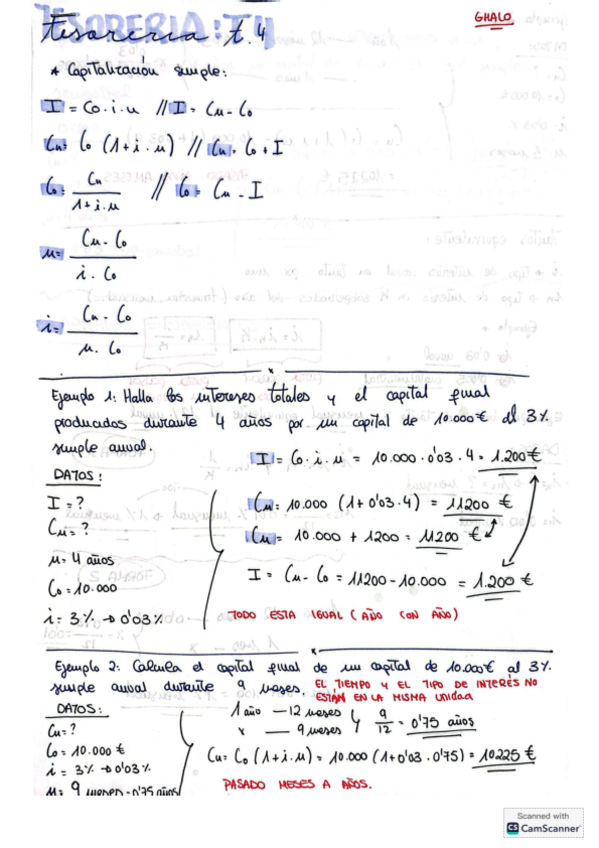 TESORERIA: T.4
Tesoreria t.4
GHALO
* Capitalización simple:
I = Co · i · n // I = Cn - Co
Cn = Co (1 + i · n) // Cn = Co + I
Co = Cn / 1 + i · n // Co = Cn - I
n = Cn - Co / i · Co
i = Cn - Co / n · Co
Ejemplo 1: Halla los intereses totales y el capital final
producidos durante 4 años por un capital de 10.000€ al 3%
simple anual.
I = Co · i · n = 10.000 · 0'03 · 4 = 1.200€
DATOS:
I = ?
Cn = ?
n = 4 años
Co = 10.000
i = 3% → 0'03%
Cn = 10.000 (1 + 0'03 · 4) = 11200 €
Cn = 10.000 + 1200 = 11200 €
I = Cn - Co = 11200 - 10.000 = 1.200 €
TODO ESTA IGUAL (AÑO CON AÑO)
Ejemplo 2: Calcula el capital final de un capital de 10.000€ al 3%
simple anual durante 9 meses. EL TIEMPO Y EL TIPO DE INTERÉS NO
ESTÁN EN LA MISMA UNIDAD
DATOS:
Cn = ?
Co = 10.000 €
i = 3% → 0'03%
n = 9 meses - 0'75 años
1 año — 12 meses
x — 9 meses
9/12 = 0'75 años
Cn = Co (1 + i · n) = 10.000 (1 + 0'03 · 0'75) = 10225 €
PASADO MESES A AÑOS.
Scanned with
CS CamScanner